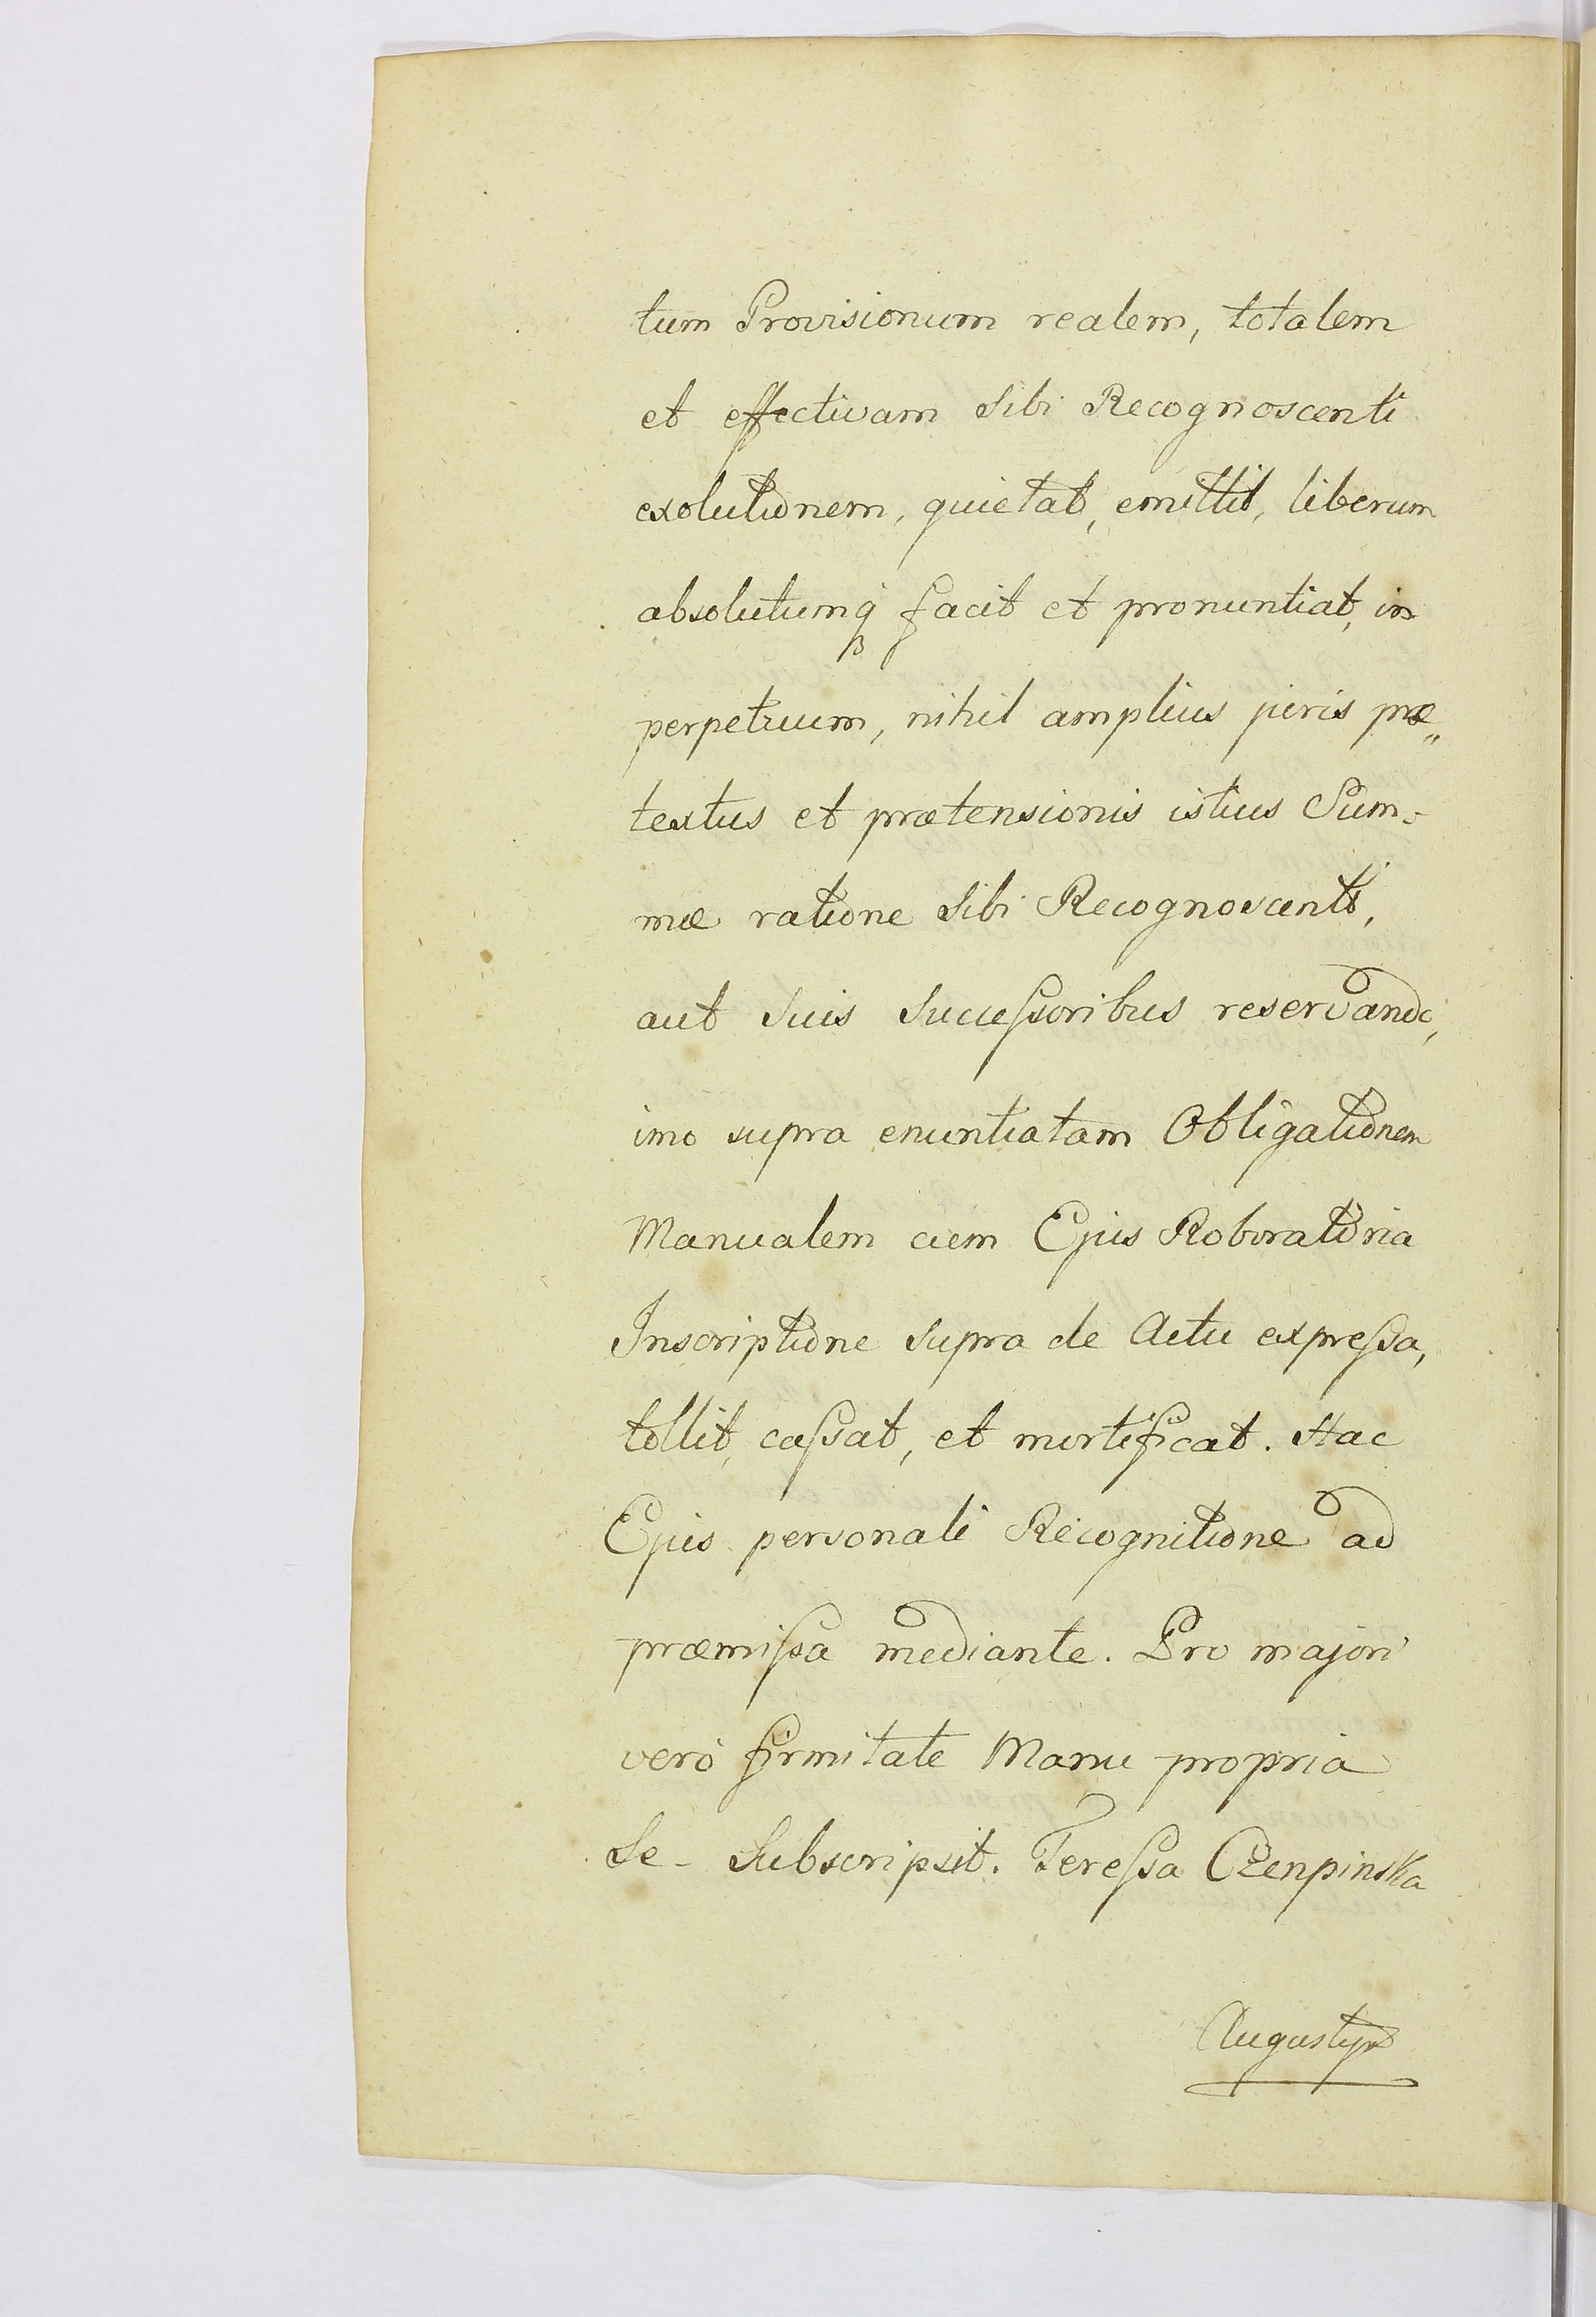 tum Provisionum realem, totalem
et effectivam Sibi Recognoscenti
exolutionem, quietat, emittit, liberum
absolutumq facit et pronuntiat, in
perpetuum, nihil amplius juris præ„
textus et prætensionis istius Sum-
mæ ratione Sibi Recognoscenti,
aut Suis Succeſsoribus reservando,
imo supra enuntiatam Obligationem
Manualem cum Ejus Roboratoria
Inscriptione Supra de Actu expreſsa,
tollit, caſsat, et mortificat. Hac
Ejus personali Recognitione ad
præmiſsa mediante. Pro majori
verò firmitate Manu propria
Se- Subscripsit. Tereſsa Czenpinska
Augustyn